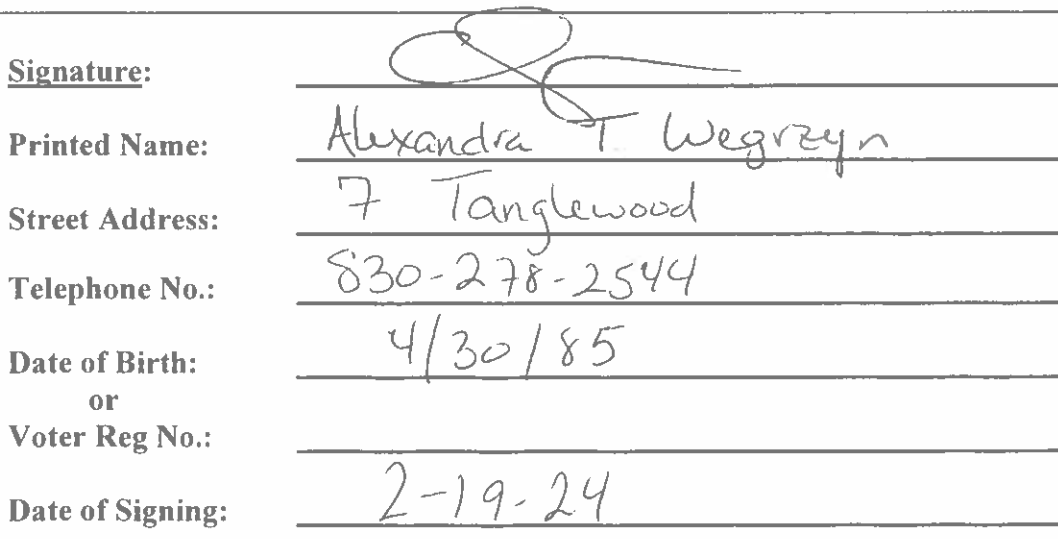 Signature:
Printed Name: Alexandra T Wegrzyn
Street Address: 7 Tanglewood
Telephone No.: 830-278-2544
Date of Birth: 4/30/85
or
Voter Reg No.:
Date of Signing: 2-19-24